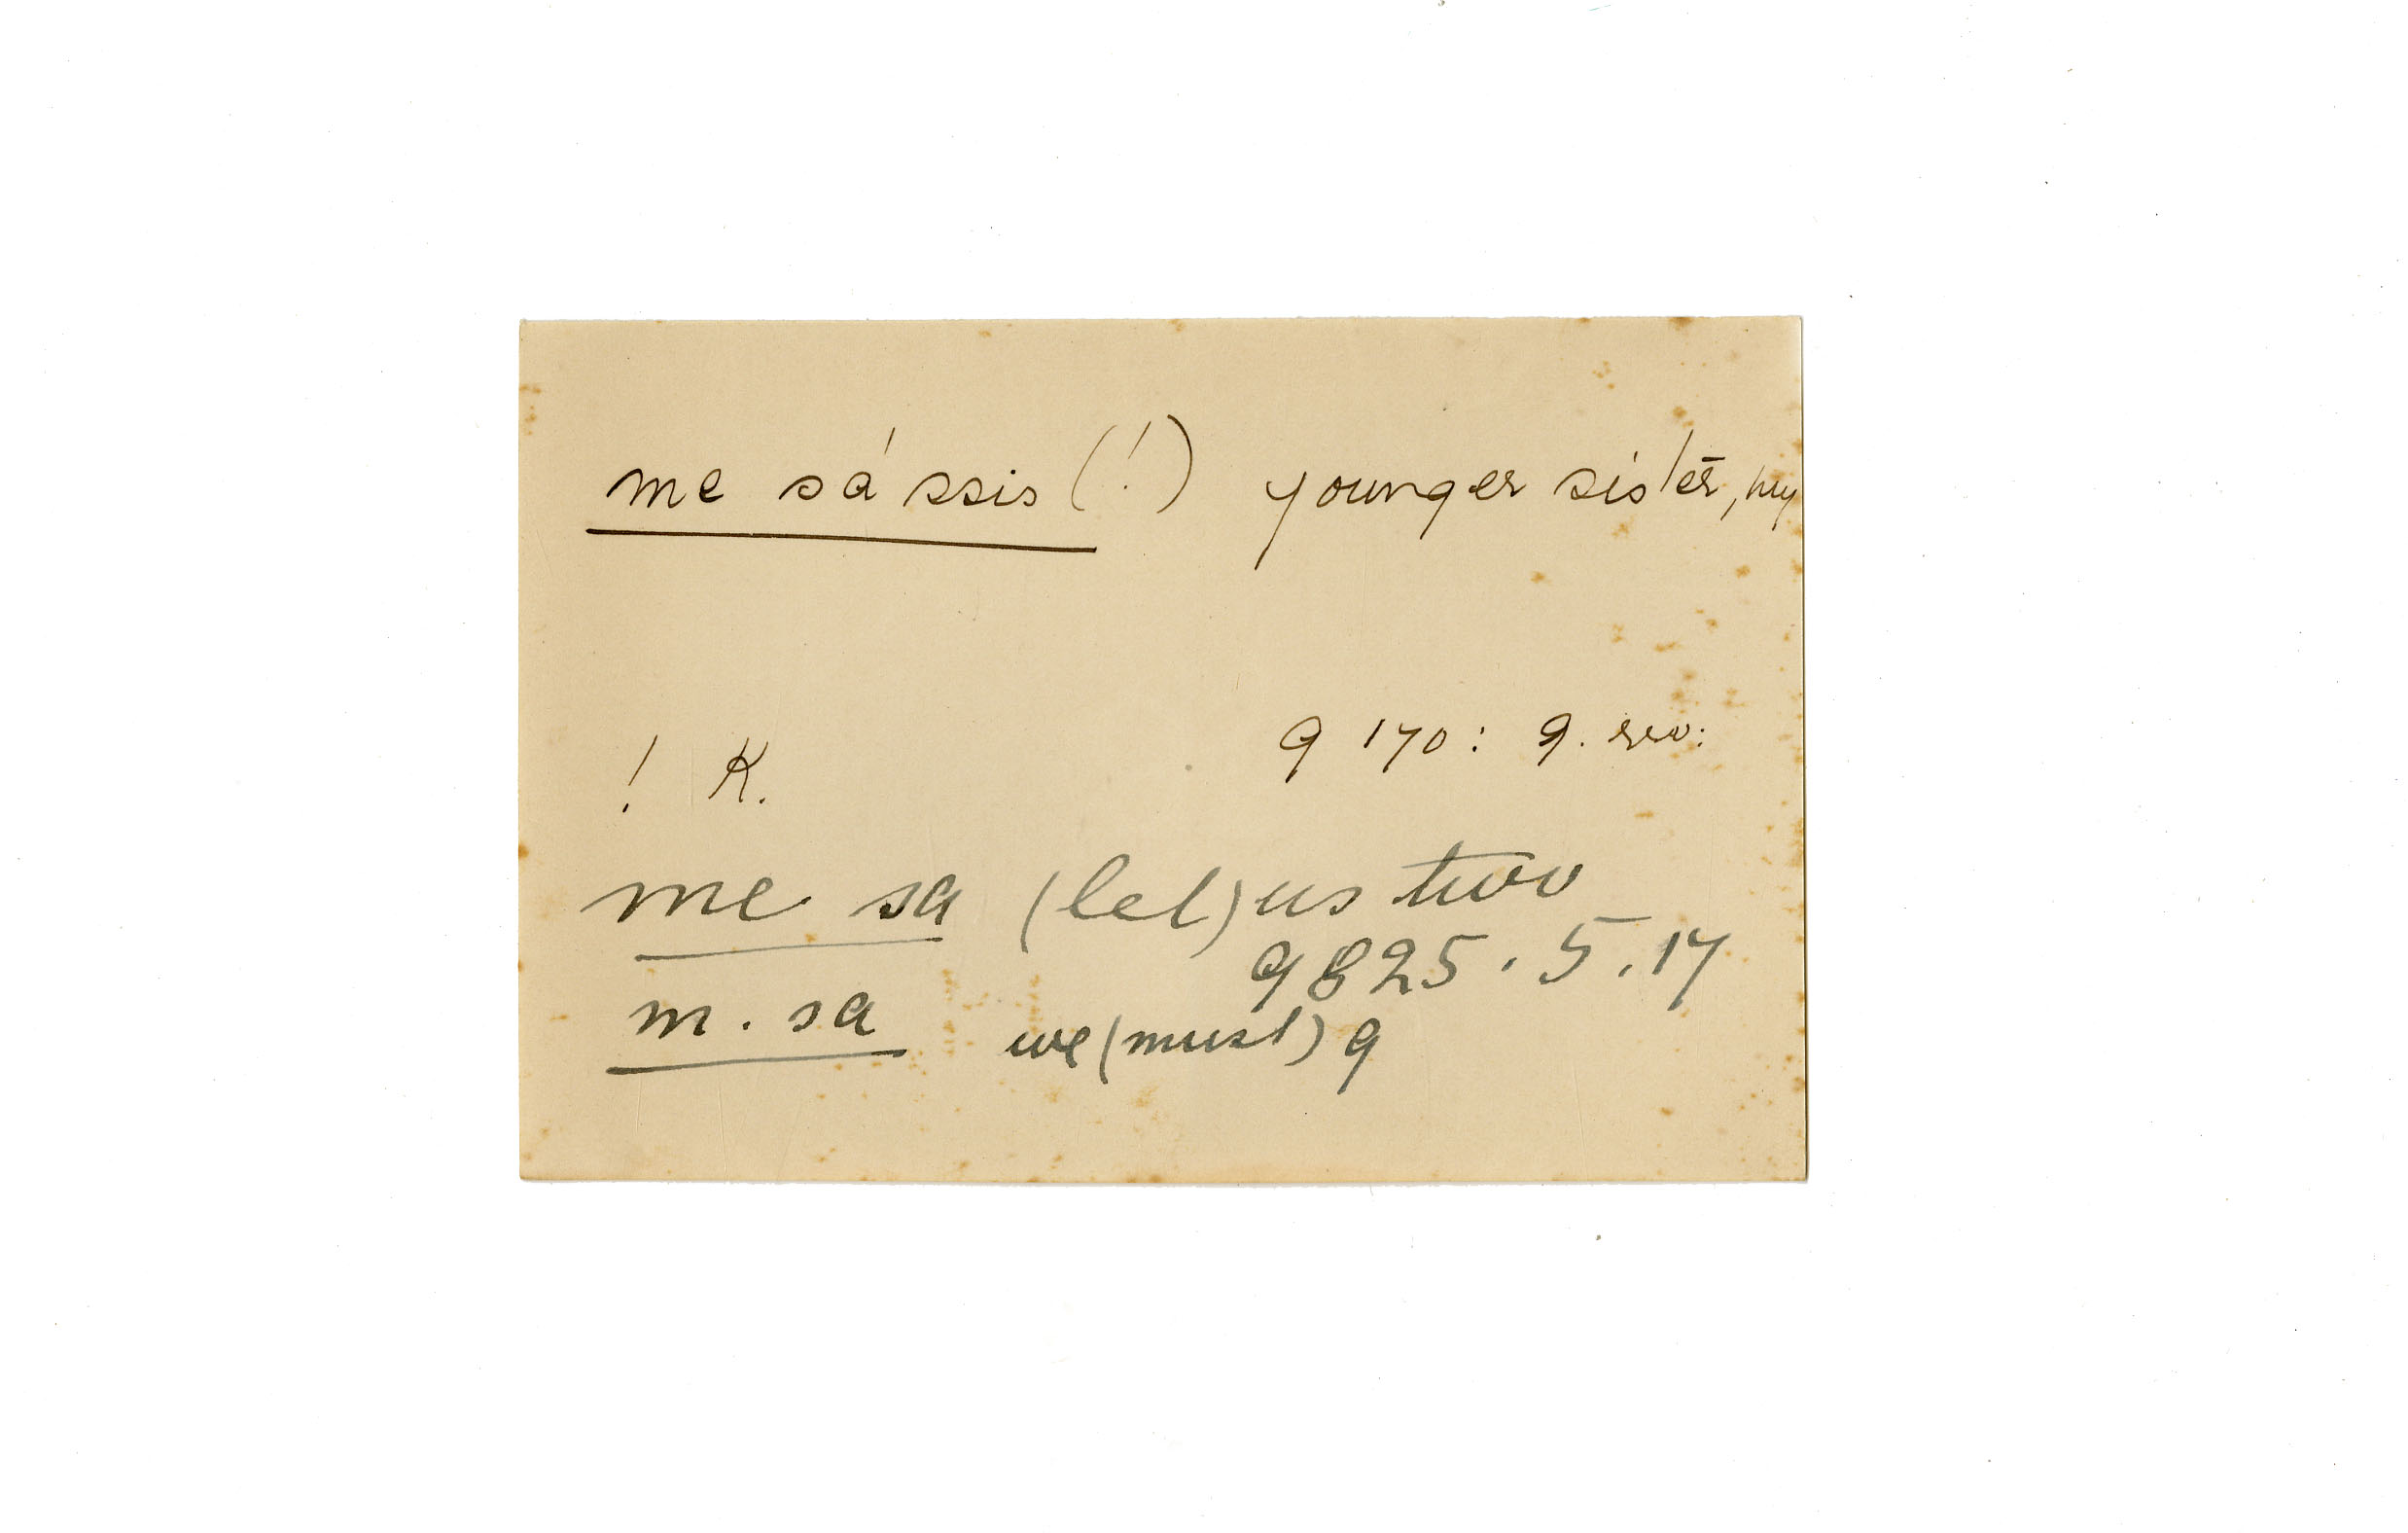 me sá ssis (!) younger sister, my
9 170: 9. rev:
! K.
me sa (let) us two
9825.5.17
m. sa we (must) 9